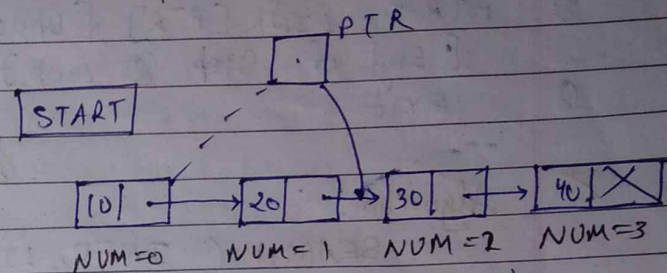 PTR
START
10 20 30 40
NUM=0 NUM=1 NUM=2 NUM=3